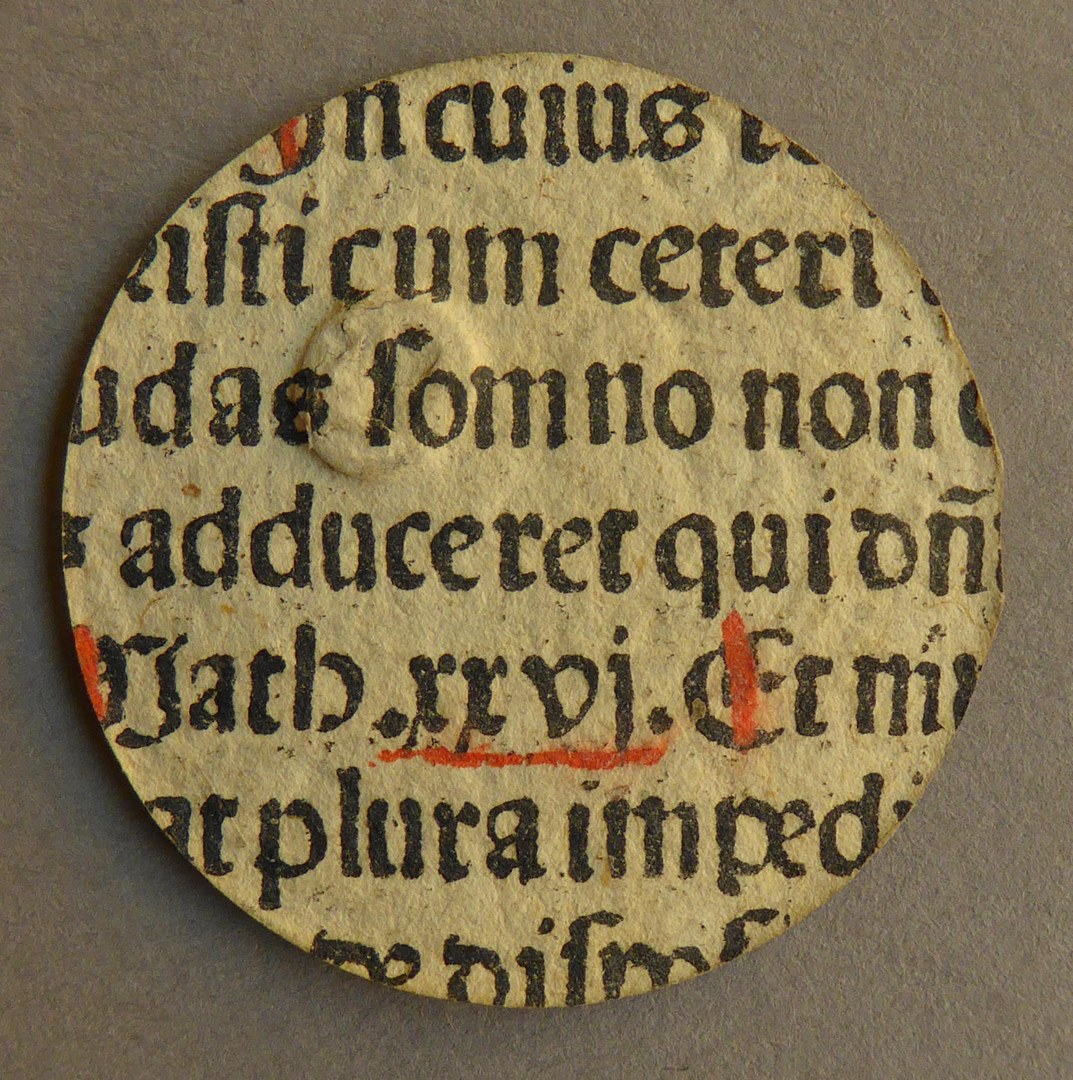 In cuius
iſti cum ceteri
udas ſomno non
adduceret qui dñ
Math .xxvj. Et
at plura imped